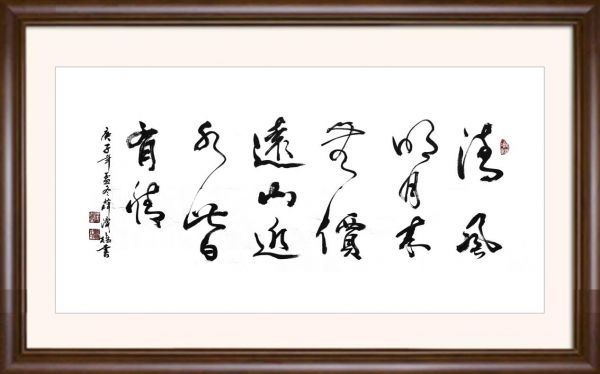 清風
明月本
無價
遠山近
水皆
有情
庚子年孟冬薛澤書